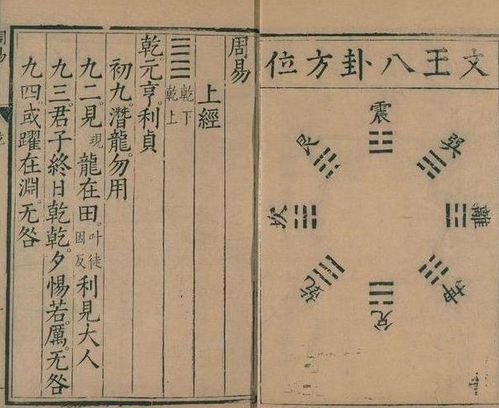 文王八卦方位
震
巽
離
坤
兌
乾
坎
艮
周易
上經
乾下
乾上
乾。元亨。利貞
初九。潛龍勿用
九二。見現龍在田。叶徒因反利見大人
九三。君子終日乾乾。夕惕若。厲。无咎
九四。或躍在淵。无咎
周易